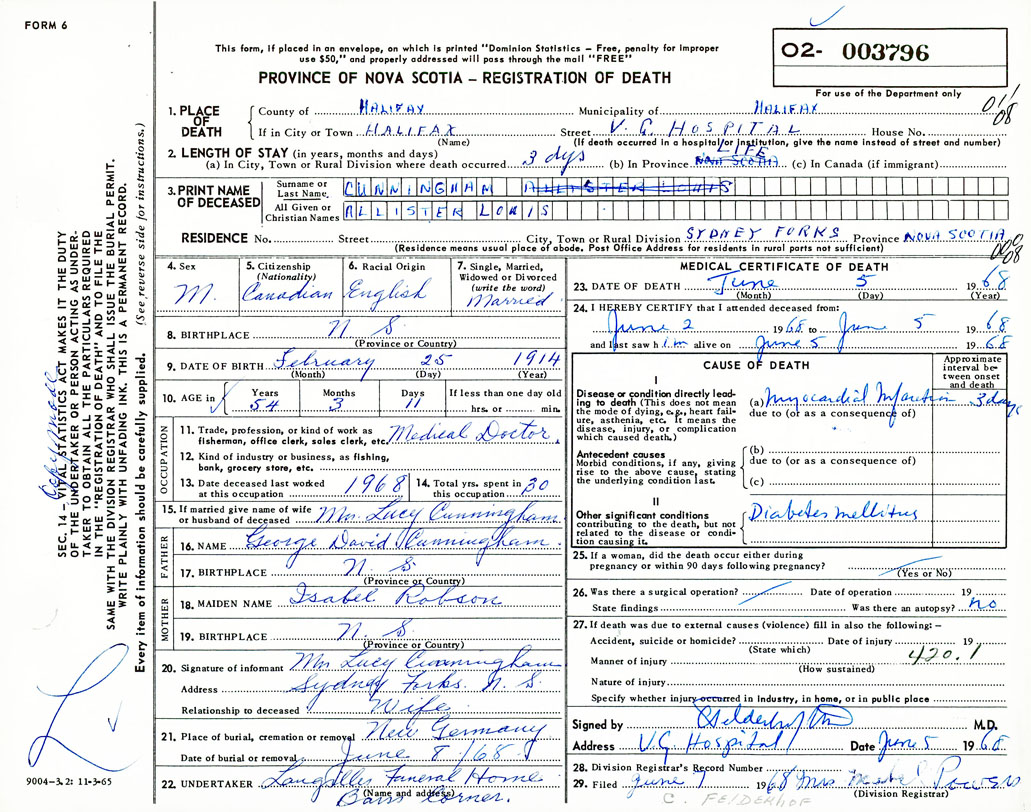 FORM 6
This form, if placed in an envelope, on which is printed "Dominion Statistics – Free, penalty for improper
use $50," and properly addressed will pass through the mail "FREE"
PROVINCE OF NOVA SCOTIA – REGISTRATION OF DEATH
02- 003796
For use of the Department only
011
08
1. PLACE OF DEATH
County of HALIFAX Municipality of HALIFAX
If in City or Town HALIFAX Street V. G. HOSPITAL House No.
(Name) (If death occurred in a hospital or institution, give the name instead of street and number)
2. LENGTH OF STAY (in years, months and days) LIFE
(a) In City, Town or Rural Division where death occurred 3 dys (b) In Province NOVA SCOTIA (c) In Canada (if immigrant)
3. PRINT NAME OF DECEASED
Surname or Last Name. CUNNINGHAM ALLISTER LOUIS
All Given or Christian Names ALLISTER LOUIS
RESIDENCE No. Street City, Town or Rural Division SYDNEY FORKS Province NOVA SCOTIA
(Residence means usual place of abode, Post Office Address for residents in rural parts not sufficient)
000
08
4. Sex M.
5. Citizenship (Nationality) Canadian
6. Racial Origin English
7. Single, Married, Widowed or Divorced (write the word) Married
8. BIRTHPLACE N S
(Province or Country)
9. DATE OF BIRTH February 25 1914
(Month) (Day) (Year)
10. AGE in Years 54 Months 3 Days 11 If less than one day old hrs. or min.
OCCUPATION
11. Trade, profession, or kind of work as fisherman, office clerk, sales clerk, etc. Medical Doctor.
12. Kind of industry or business, as fishing, bank, grocery store, etc.
13. Date deceased last worked at this occupation 1968
14. Total yrs. spent in this occupation 30
15. If married give name of wife or husband of deceased Mrs. Lucy Cunningham
FATHER
16. NAME George David Cunningham.
17. BIRTHPLACE N. S.
(Province or Country)
MOTHER
18. MAIDEN NAME Isabel Robson
19. BIRTHPLACE N. S.
(Province or Country)
20. Signature of informant Mrs Lucy Cunningham
Address Sydney Forks. N. S.
Relationship to deceased Wife
21. Place of burial, cremation or removal New Germany
Date of burial or removal June 8 /68
22. UNDERTAKER Funeral Home
(Name and address)
Barss Corner.
MEDICAL CERTIFICATE OF DEATH
23. DATE OF DEATH June 5 1968
(Month) (Day) (Year)
24. I HEREBY CERTIFY that I attended deceased from:
June 2 1968 to June 5 1968
and last saw him alive on June 5 1968
CAUSE OF DEATH
Approximate interval between onset and death
I
Disease or condition directly leading to death (This does not mean the mode of dying, e.g., heart failure, asthenia, etc. It means the disease, injury, or complication which caused death.)
(a) Myocardial Infarction 3 days
due to (or as a consequence of)
Antecedent causes
Morbid conditions, if any, giving rise to the above cause, stating the underlying condition last.
(b)
due to (or as a consequence of)
(c)
II
Other significant conditions contributing to the death, but not related to the disease or condition causing it.
Diabetes mellitus
25. If a woman, did the death occur either during
pregnancy or within 90 days following pregnancy?
(Yes or No)
26. Was there a surgical operation? Date of operation 19
State findings Was there an autopsy? no
27. If death was due to external causes (violence) fill in also the following: –
Accident, suicide or homicide? Date of injury 19
(State which)
420.1
Manner of injury
(How sustained)
Nature of injury
Specify whether injury occurred in Industry, in home, or in public place
Signed by M.D.
Address V.G Hospital Date June 5 1968
28. Division Registrar's Record Number
29. Filed June 7 1968 Mrs Powers
(Division Registrar)
C. FELDERHOF
9004-3.2: 11-3-65
SEC. 14 – VITAL STATISTICS ACT MAKES IT THE DUTY
OF THE UNDERTAKER OR PERSON ACTING AS UNDER-
TAKER TO OBTAIN ALL THE PARTICULARS REQUIRED
IN THE "REGISTRATION OF DEATH" AND TO FILE THE
SAME WITH THE DIVISION REGISTRAR WHO SHALL ISSUE THE BURIAL PERMIT.
WRITE PLAINLY WITH UNFADING INK. THIS IS A PERMANENT RECORD.
Every item of information should be carefully supplied. (See reverse side for instructions.)